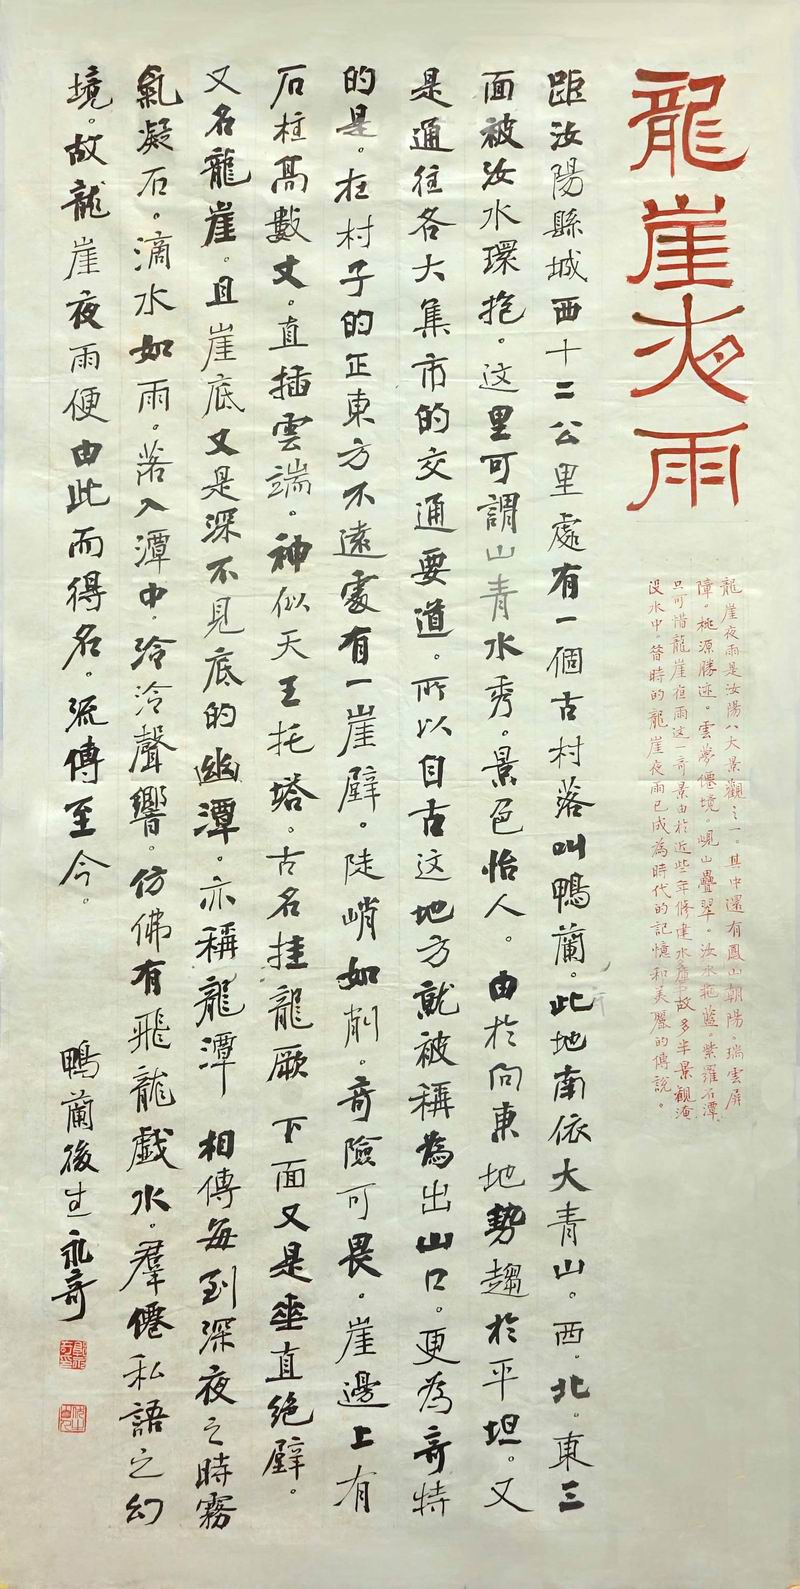 龍崖夜雨
龍崖夜雨是汝陽八大景觀之一。其中還有鳳山朝陽。瑞雲屏
障。桃源勝迹。雲夢僊境。峴山疊翠。汝水拖藍。紫羅石潭
只可惜龍崖夜雨这一奇景由於近些年修建水庫故多半景观淹
没水中。昔時的龍崖夜雨已成為時代的記憶和美麗的傳說。
距汝陽縣城西十二公里處有一個古村落叫鴨蘭。此地南依大青山。西。北。東三
面被汝水環抱。这里可謂山青水秀。景色怡人。由於向東地勢趨於平坦。又
是通往各大集市的交通要道。所以自古这地方就被稱為出山口。更為奇特
的是。在村子的正東方不遠處有一崖壁。陡峭如削。奇險可畏。崖邊上有
石柱高數丈。直插雲端。神似天王托塔。古名挂龍厥 下面又是垂直绝壁。
又名龍崖。且崖底又是深不見底的幽潭。亦稱龍潭 相傳每到深夜之時霧
氣凝石。滴水如雨。落入潭中。泠泠聲響。仿佛有飛龍戲水。羣僊私語之幻
境。故龍崖夜雨便由此而得名。流傳至今。
鴨蘭後生永奇